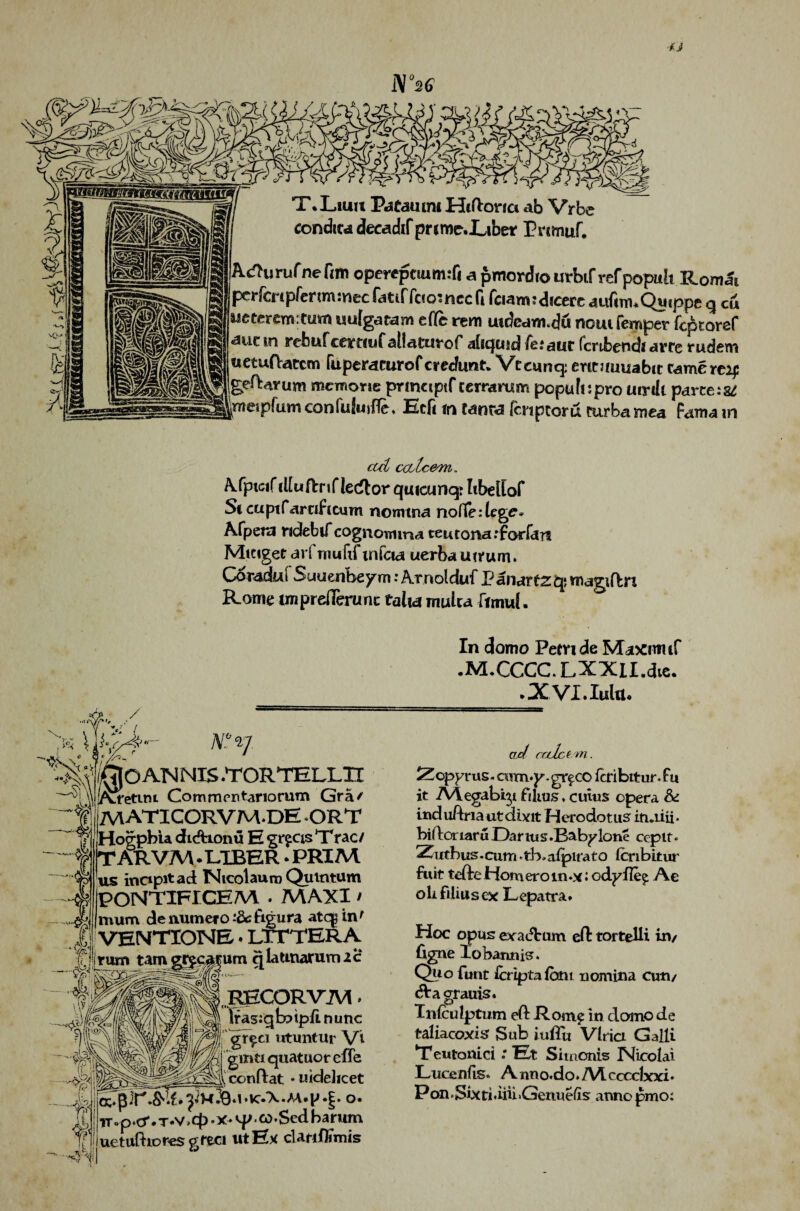 43
N°26
T.Liuii Patauini Historici ab Vrbe
condita decadis prime.Liber Primus.
Acturus ne sim opereptium:si a pmordio urbis res populi Romāi
perscripserim:nec satis scio:nec si sciam:dicere ausim.Quippe q cū
ueterem:tum uulgatam esse rem uideam.dū noui semper scptores
aut in rebus certius allaturos aliquid se:aut scribendi arte rudem
uetustatem superaturos credunt. Vtcunq; erit iuuabit tamē reꝝ
gestarum memorie principis terrarum populi:pro uirili parte:&
meipsum consuluisse. Etsi in tanta scriptorū turba mea fama in
ad calcem.
Aspicis illustris lector quicunq; libellos
Si cupis artificum nomina nosse:lege.
Aspera ridebis cognomina teutona:forsan
Mitiget ars musis inscia uerba uirum.
Coradus Suuenbeym:Arnoldus Pānartzq; magistri
Rome impresserunt talia multa simul.
In domo Petri de Maximis
.M.CCCC.LXXII.die.
.XVI.Iulii.
N°27
IOANNIS.TORTELLII
Aretini Commentariorum Gra/
MATICORVM.DE.ORT
Hogphia dictionū E gręcis Trac/
TARVM.LIBER.PRIM
us incipit ad Nicolaum Quintum
PONTIFICEM . MAXI/
mum de numero:&figura atq; in/
VENTIONE.LITTERA
rum tam gręcarum q̄ latinarum 2c̄
RECORVM.
lras:q̄ bo ipsi nunc
gręci utuntur Vi
ginti quatuor esse
constat . uidelicet
α.β.Γ.δ.ε.ζ.Η.θ.ι.κ.λ.Μ.ν.ξ.ο.
π.ρ.σ.τ.ν.φ.χ.ψ.ω.Sed harum
uetustiores gręci ut Ex clarissimis
ad calcem.
Zopyrus.cum.y.gręco scribitur.fu
it Megabizi filius, cuius opera &
industria ut dixit Herodotus in.iiii.
bistoriarū Darius.Babylonē cepit.
Zuthus.cum.th.aspirato scribitur
fuit teste Homero in.x: odysseę Ae
oli filius ex Lepatra.
Hoc opus exactum est tortelli in/
signe Iobannis.
Quo sunt scripta soni nomina cun/
cta grauis.
Insculptum est Romę in domo de
taliacoxis Sub iussu Vlrici Galli
Teutonici : Et Simonis Nicolai
Lucensis. Anno.do.Mccccxxi.
Pon.Sixti.iiii.Genuēsis anno pmo: